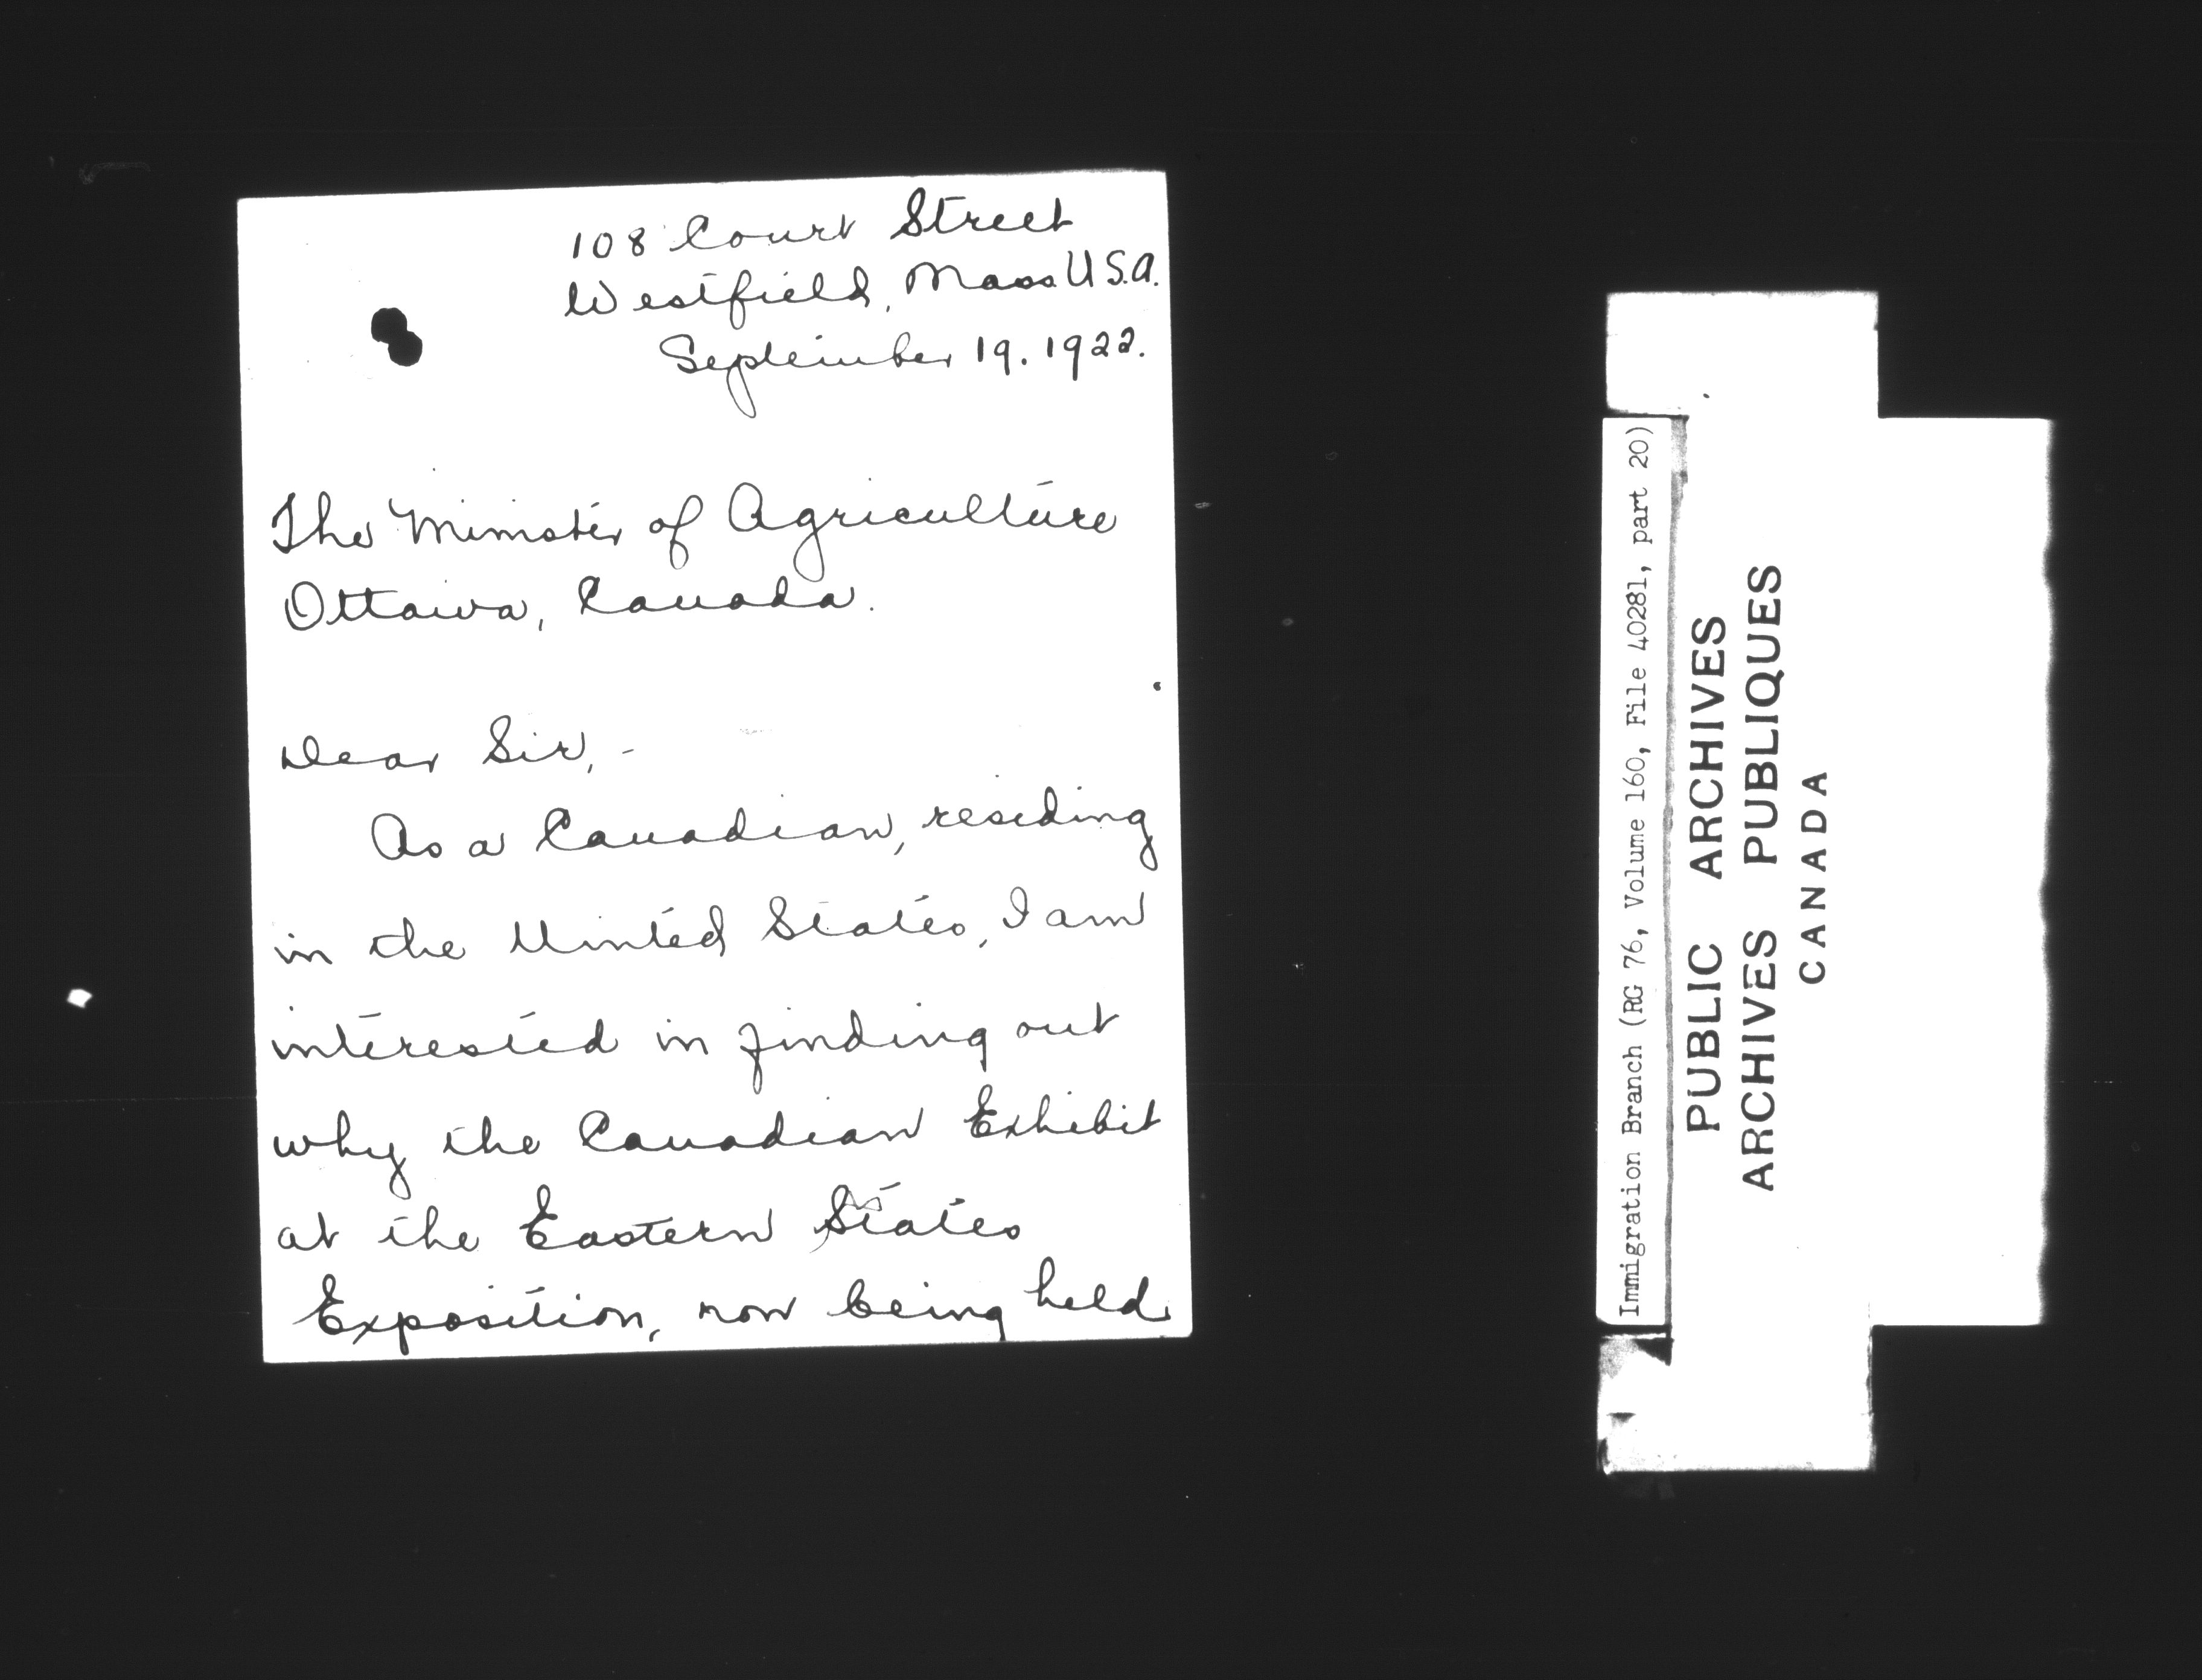 108 Court Street
Westfield, Mass U.S.A.
September 19. 1922.
The Minister of Agriculture
Ottawa, Canada.
Dear Sir, -
As a Canadian, residing
in the United States, I am
interested in finding out
why the Canadian Exhibit
at the Eastern States
Exposition, now being held
Immigration Branch (RG 76, Volume 160, File 40281, part 20)
PUBLIC ARCHIVES
ARCHIVES PUBLIQUES
CANADA